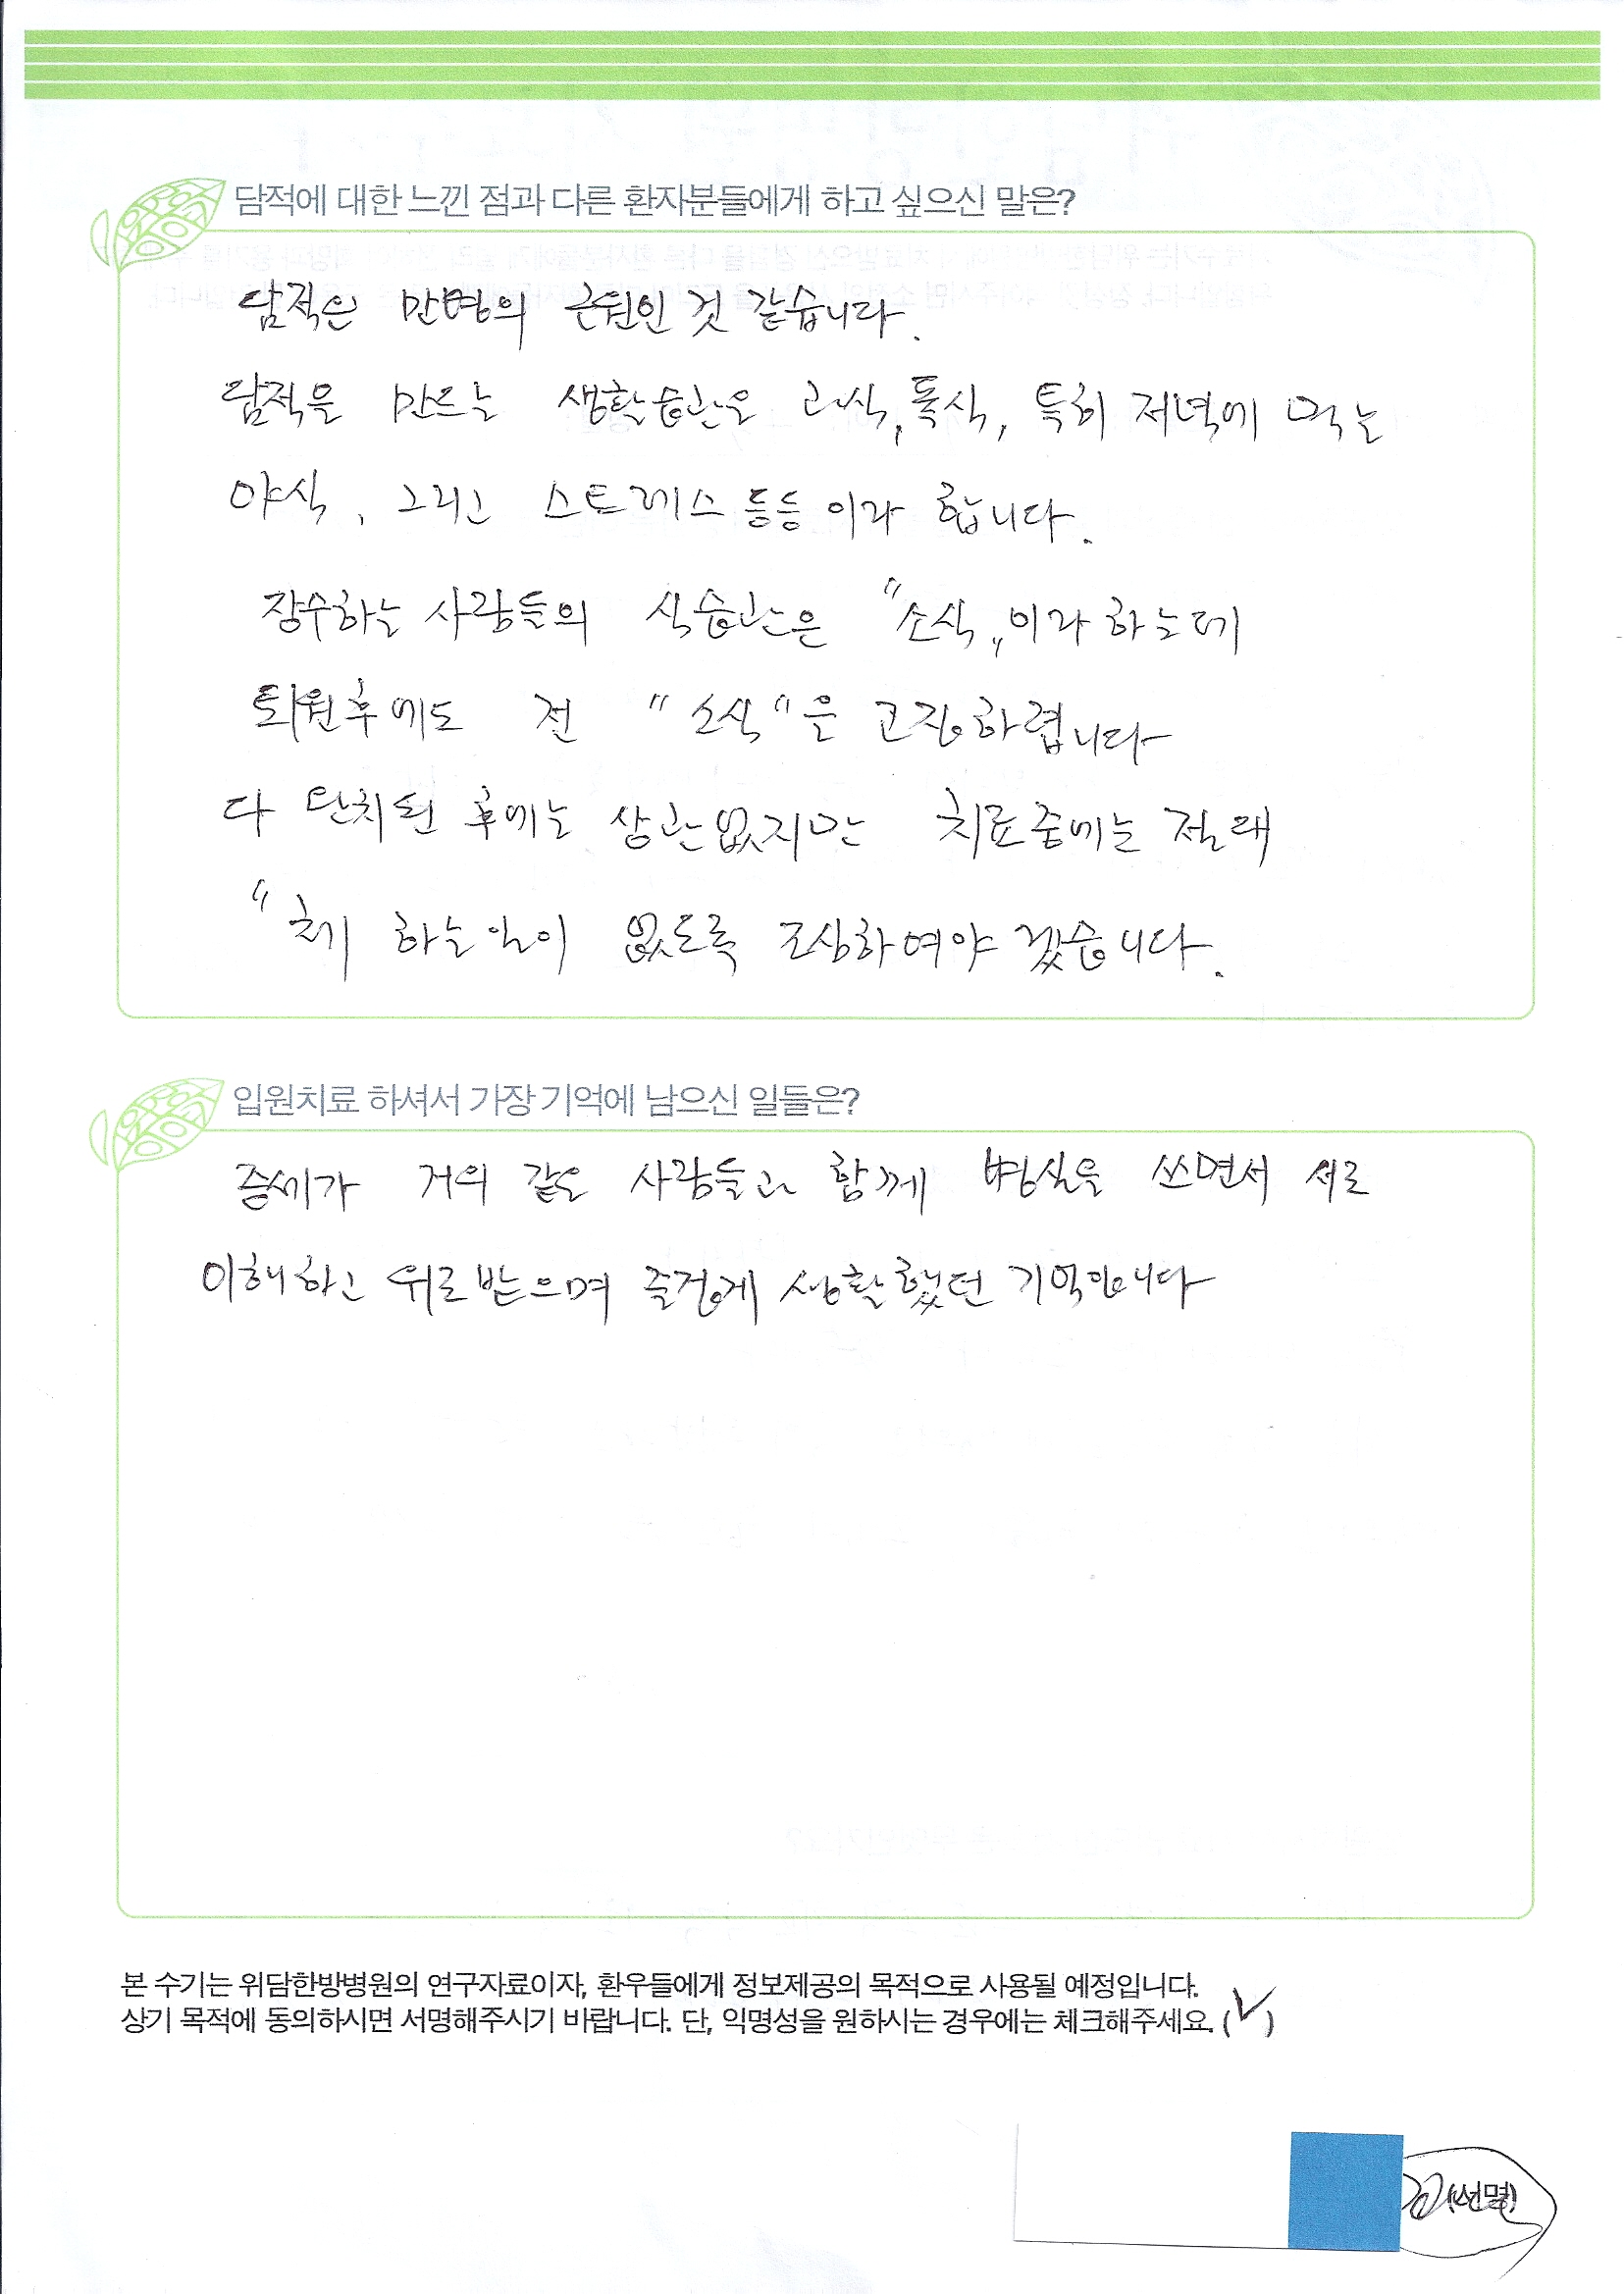 담적에 대한 느낀 점과 다른 환자분들에게 하고 싶으신 말은?
담적은 만병의 근원인 것 같습니다.
담적을 만드는 생활습관은 과식, 폭식, 특히 저녁에 먹는
야식, 그리고 스트레스 등등 이라 합니다.
장수하는 사람들의 식습관은 "소식"이라 하는데
퇴원후에도 전 "소식"은 고집하렵니다
다 완치된 후에는 상관없지만 치료중에는 절대
"체 하는일이 없도록 조심하여야 겠습니다.
입원치료 하셔서 가장 기억에 남으신 일들은?
증세가 거의 같은 사람들과 함께 병실을 쓰면서 서로
이해하고 위로받으며 즐겁게 생활했던 기억입니다
본 수기는 위담한방병원의 연구자료이자, 환우들에게 정보제공의 목적으로 사용될 예정입니다.
상기 목적에 동의하시면 서명해주시기 바랍니다. 단, 익명성을 원하시는 경우에는 체크해주세요. (✓)